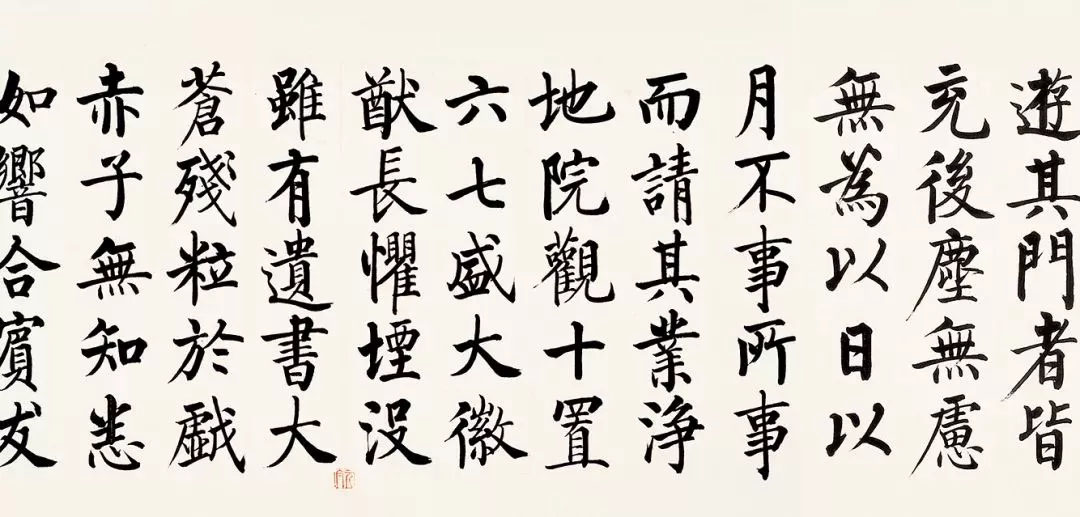 遊其門者皆
充後塵無慮
無為以日以
月不事所事
而請其業淨
地院觀十置
六七盛大徽
猷長懼堙没
雖有遺書大
蒼殘粒於戲
赤子無知恙
如響合賓友